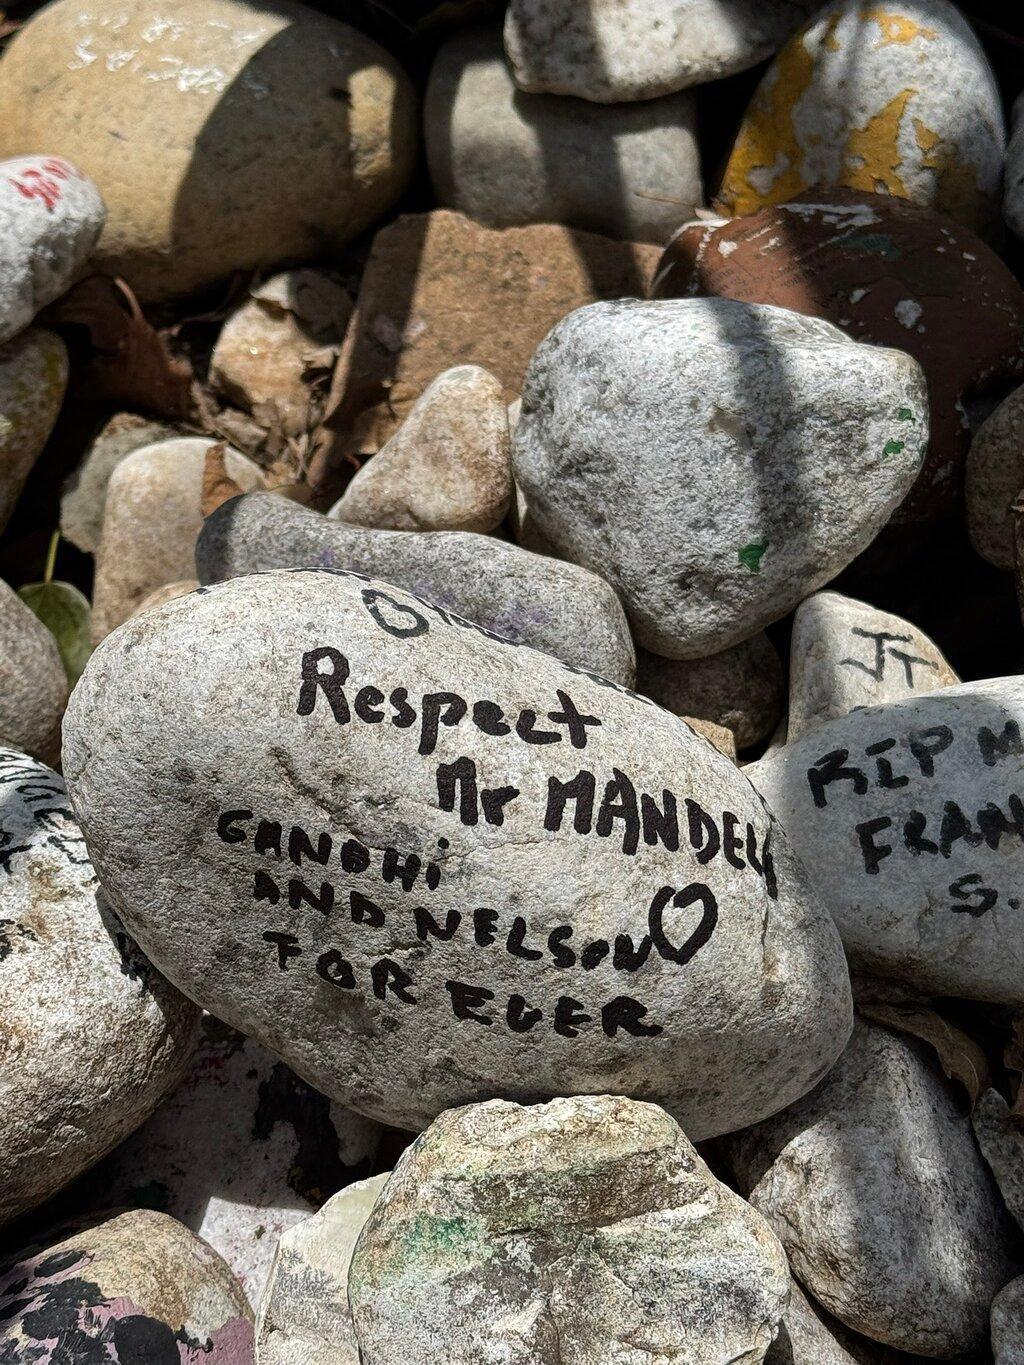 Respect
Mr MANDELA
GANDHI
AND NELSON
FOR EVER
JT
RIP M
FRAN
S.